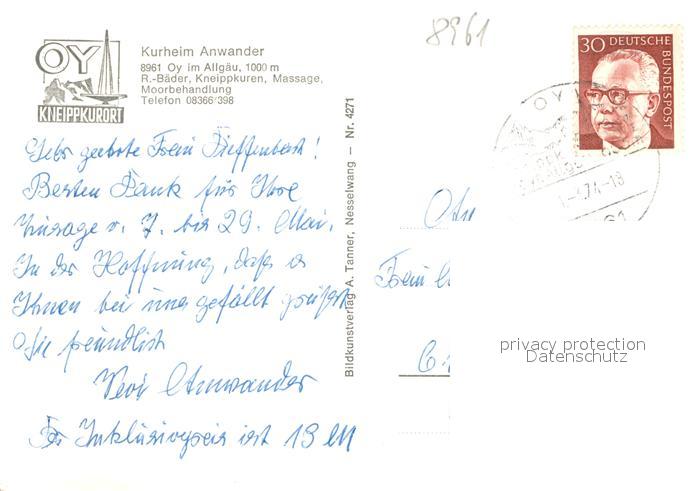 8961
OY
KNEIPPKURORT
Kurheim Anwander
8961 Oy im Allgäu, 1000 m
R.-Bäder, Kneippkuren, Massage,
Moorbehandlung
Telefon 08366/398
30 DEUTSCHE
BUNDESPOST
OY
Sehr geehrte Frau Dieffenbach!
Besten Dank für Ihre
Zusage v. 7. bis 29. Mai.
In der Hoffnung, daß es
Ihnen bei uns gefällt grüßt
Sie freundlich
Anwander
Inklusivpreis ist 19 M
Bildkunstverlag A. Tanner, Nesselwang — Nr. 4271
An
Frau
privacy protection
Datenschutz